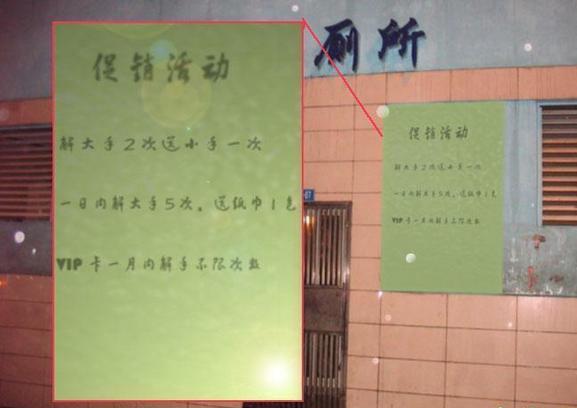 厕所
促销活动
解大手2次送小手一次
一日内解大手5次，送纸巾1包
VIP卡一月内解手不限次数
促销活动
解大手2次送小手一次
一日内解大手5次，送纸巾1包
VIP卡一月内解手不限次数